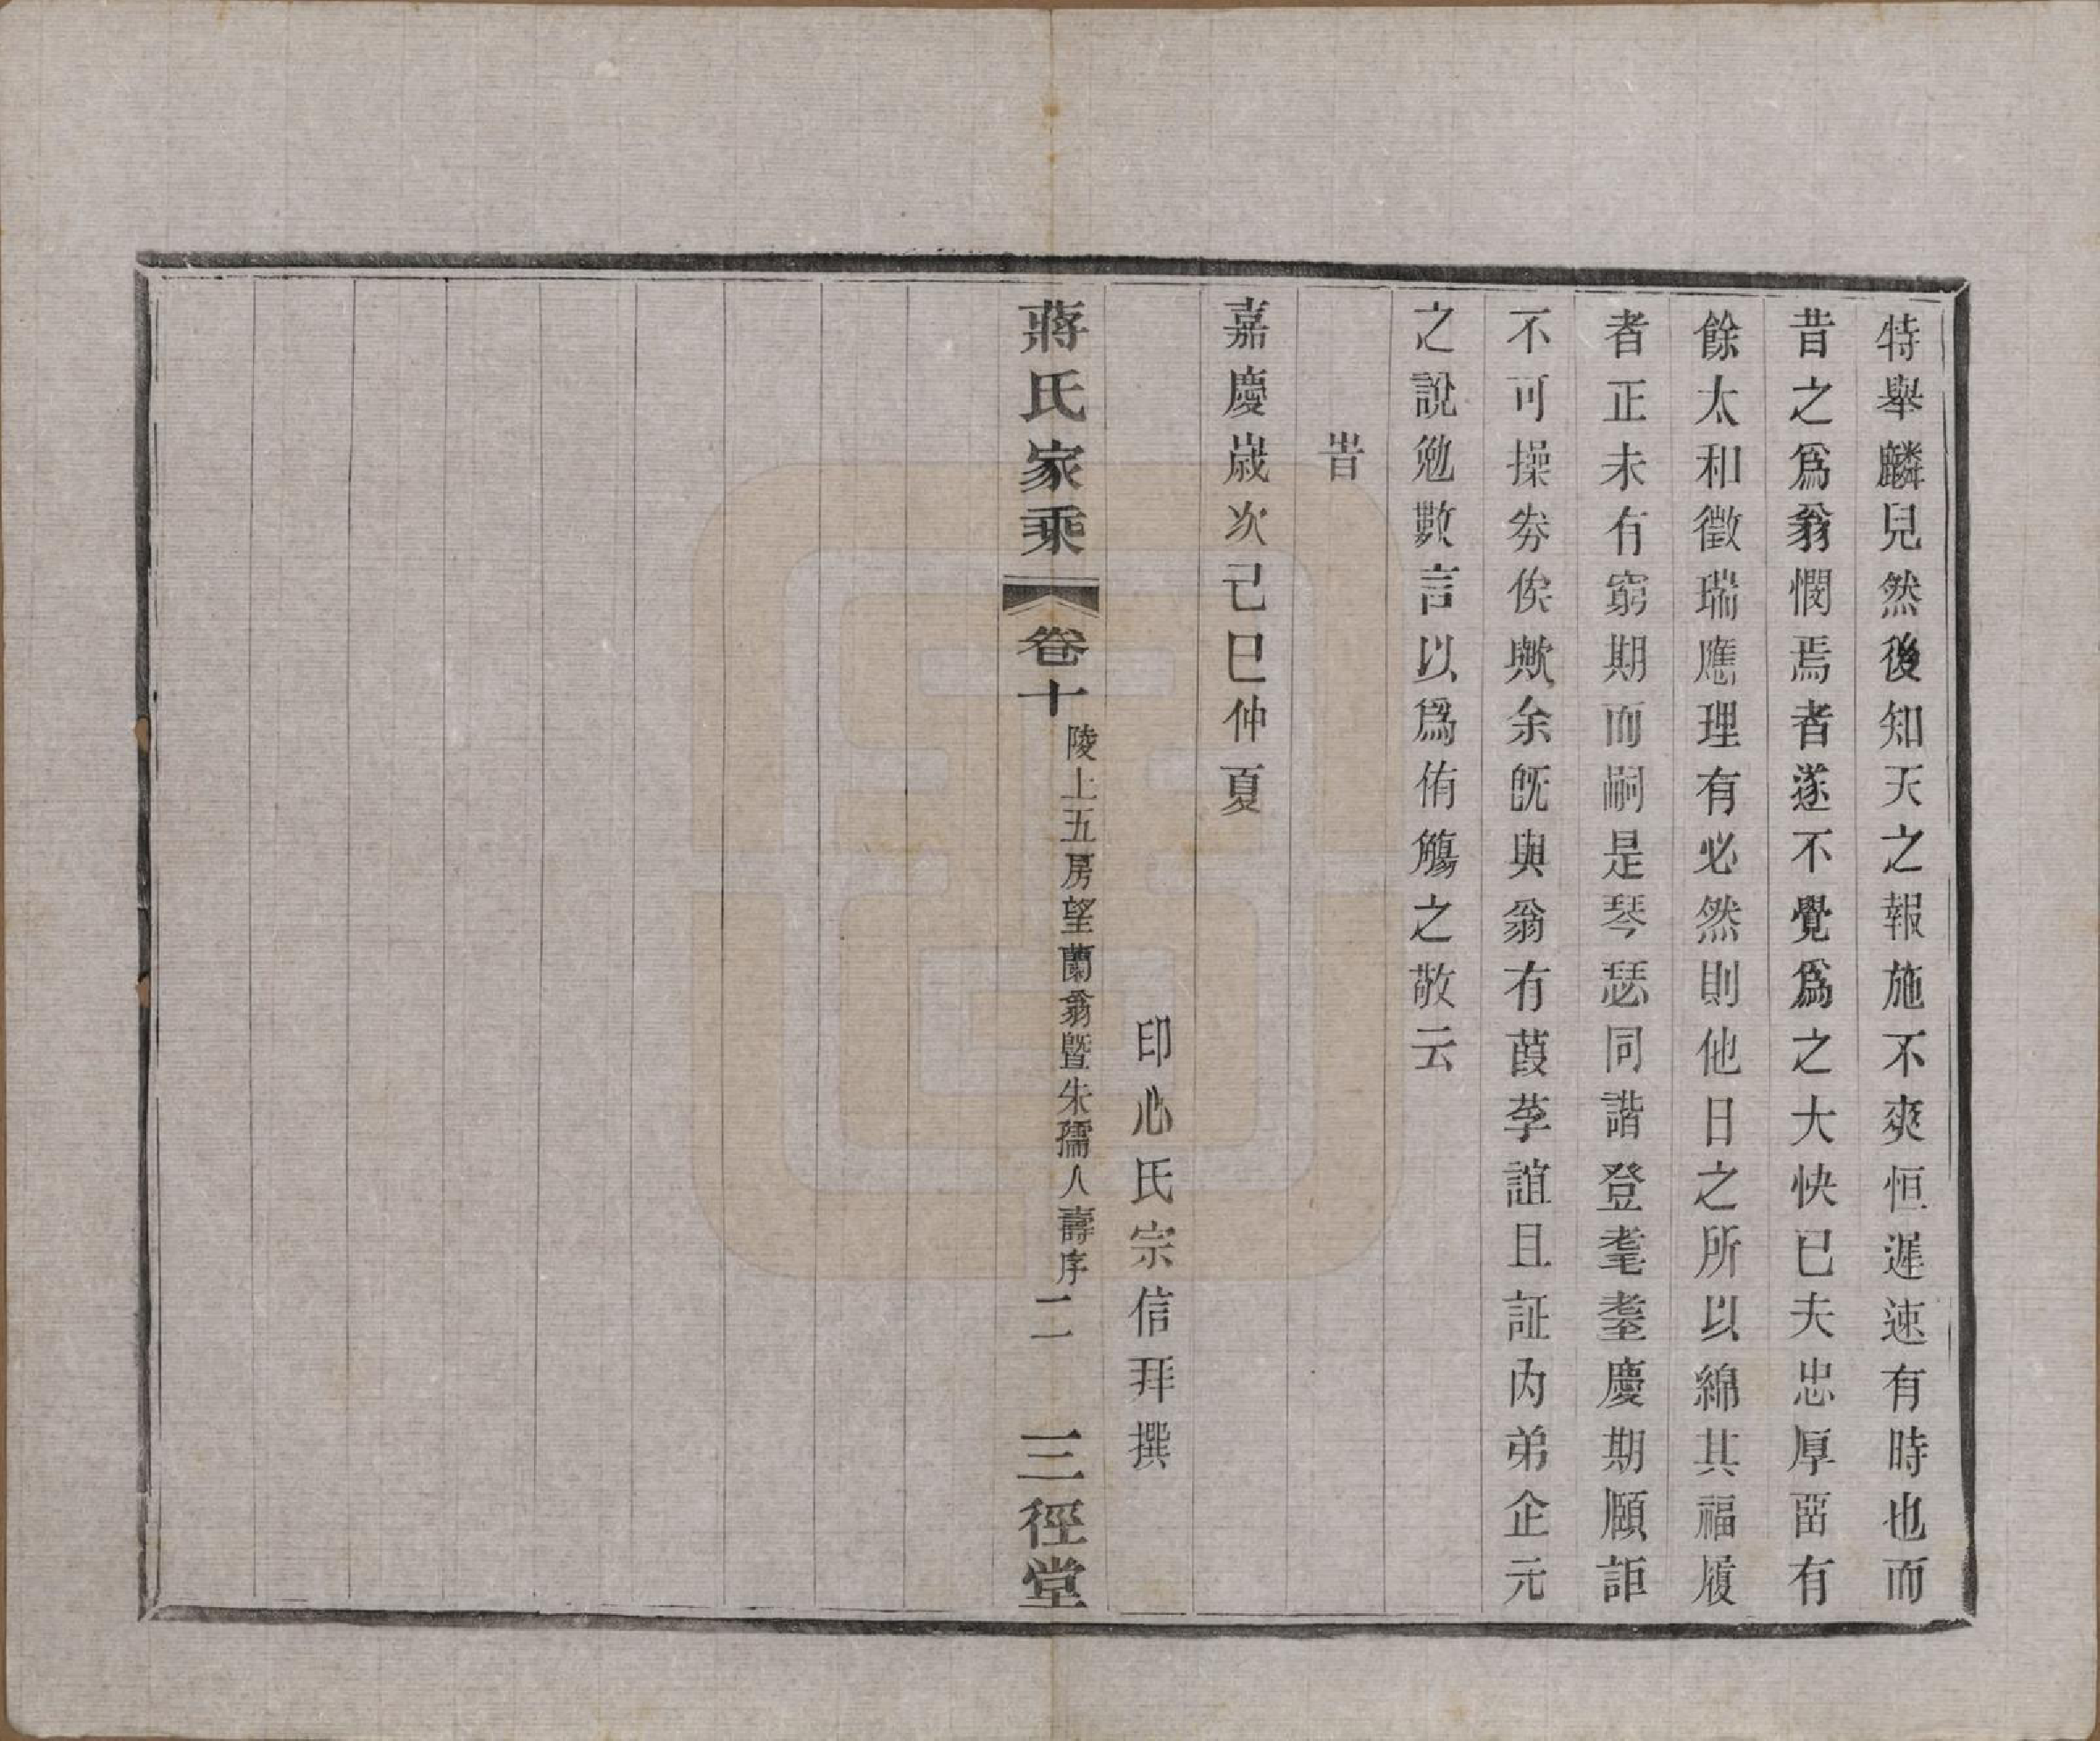 特舉麟兒然後知天之報施不爽恒遲速有時也而
昔之爲翁憫焉者遂不覺爲之大快已夫忠厚畱有
餘太和徵瑞應理有必然則他日之所以綿其福履
者正未有窮期而嗣是琴瑟同諧登耄耋慶期頤詎
不可操劵俟歟余旣與翁有葭莩誼且証内弟企元
之說勉數言以爲侑觴之敬云
旹
嘉慶歲次己巳仲夏
印心氏宗信拜撰
蔣氏家乘 卷十 陵上五房望蘭翁曁朱孺人壽序 二 三徑堂